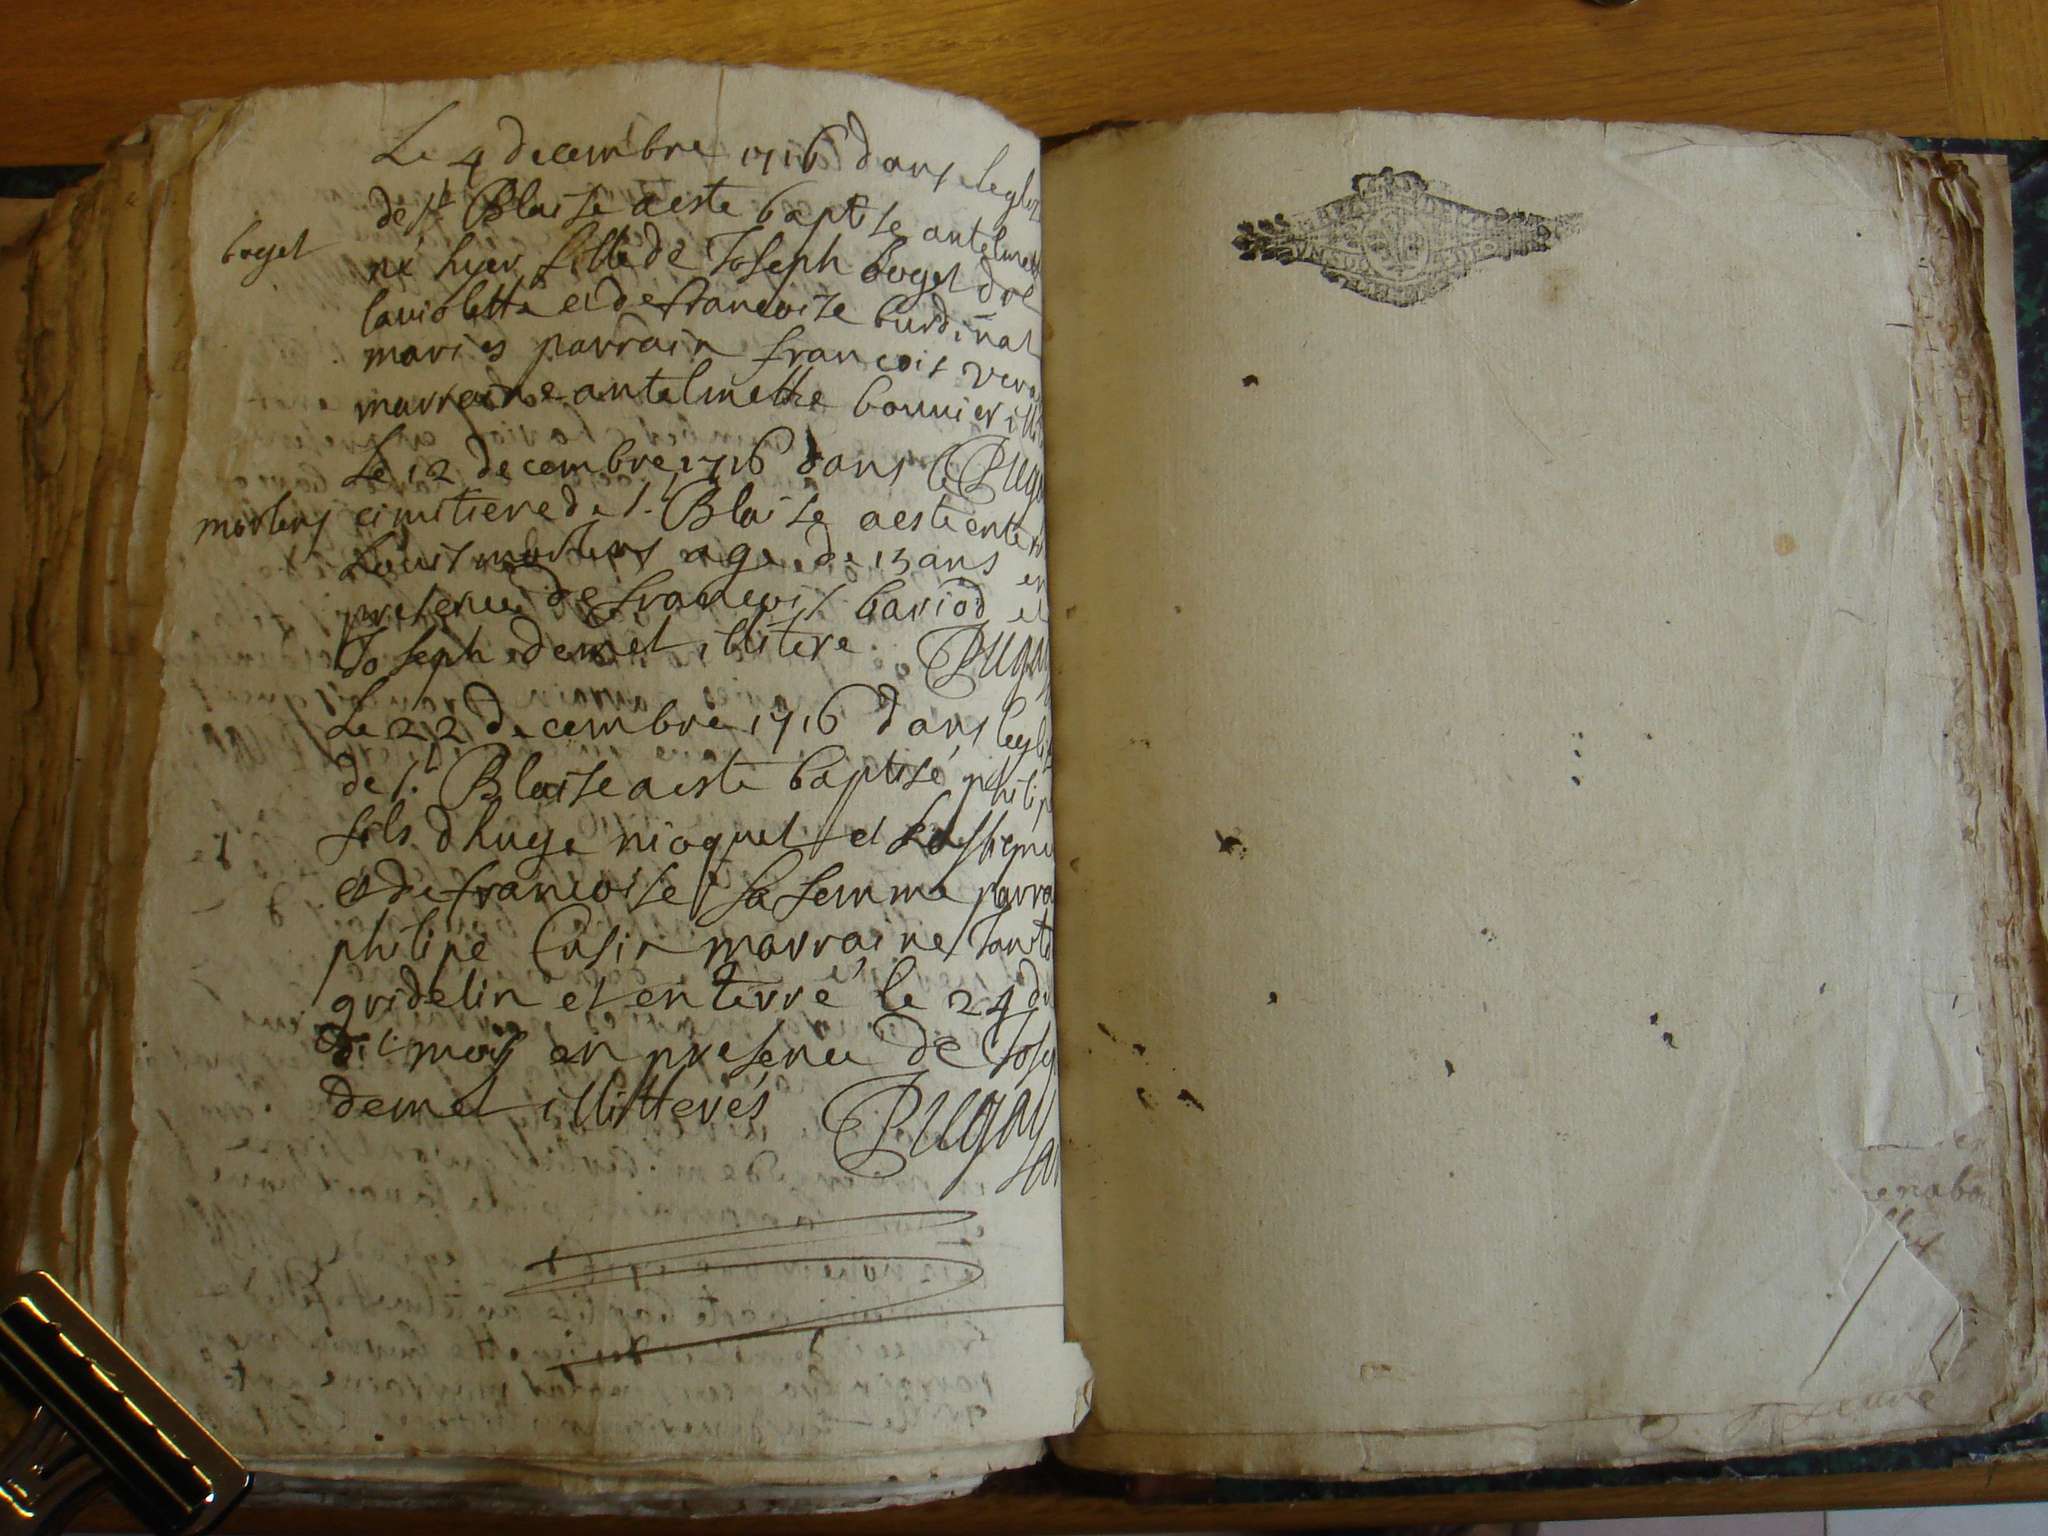 Le 4 decembre 1716 dans leglize
de st Blaise a este baptise antelmette
boget
né hyer fille de Joseph boget dre
laviolette et de francoise burdinat
maries parrain francois
marraine antelmette bonnier
Le 12 decembre 1716 dans le Pugay
morlens
cimitiere de s. Blaise a este enterre
Louis morlens age de 13 ans en
presence de francois bariod et
Joseph demet illitere Pugay
Le 22 decembre 1716 dans leglize
de st Blaise a este baptisé philipe
fils dhuge nioquet et
et de francoise sa femme parrain
philipe Cusin marraine
gridelin et enterré le 24 du
dit mois en presence de Joseph
demet illitterés Pugay